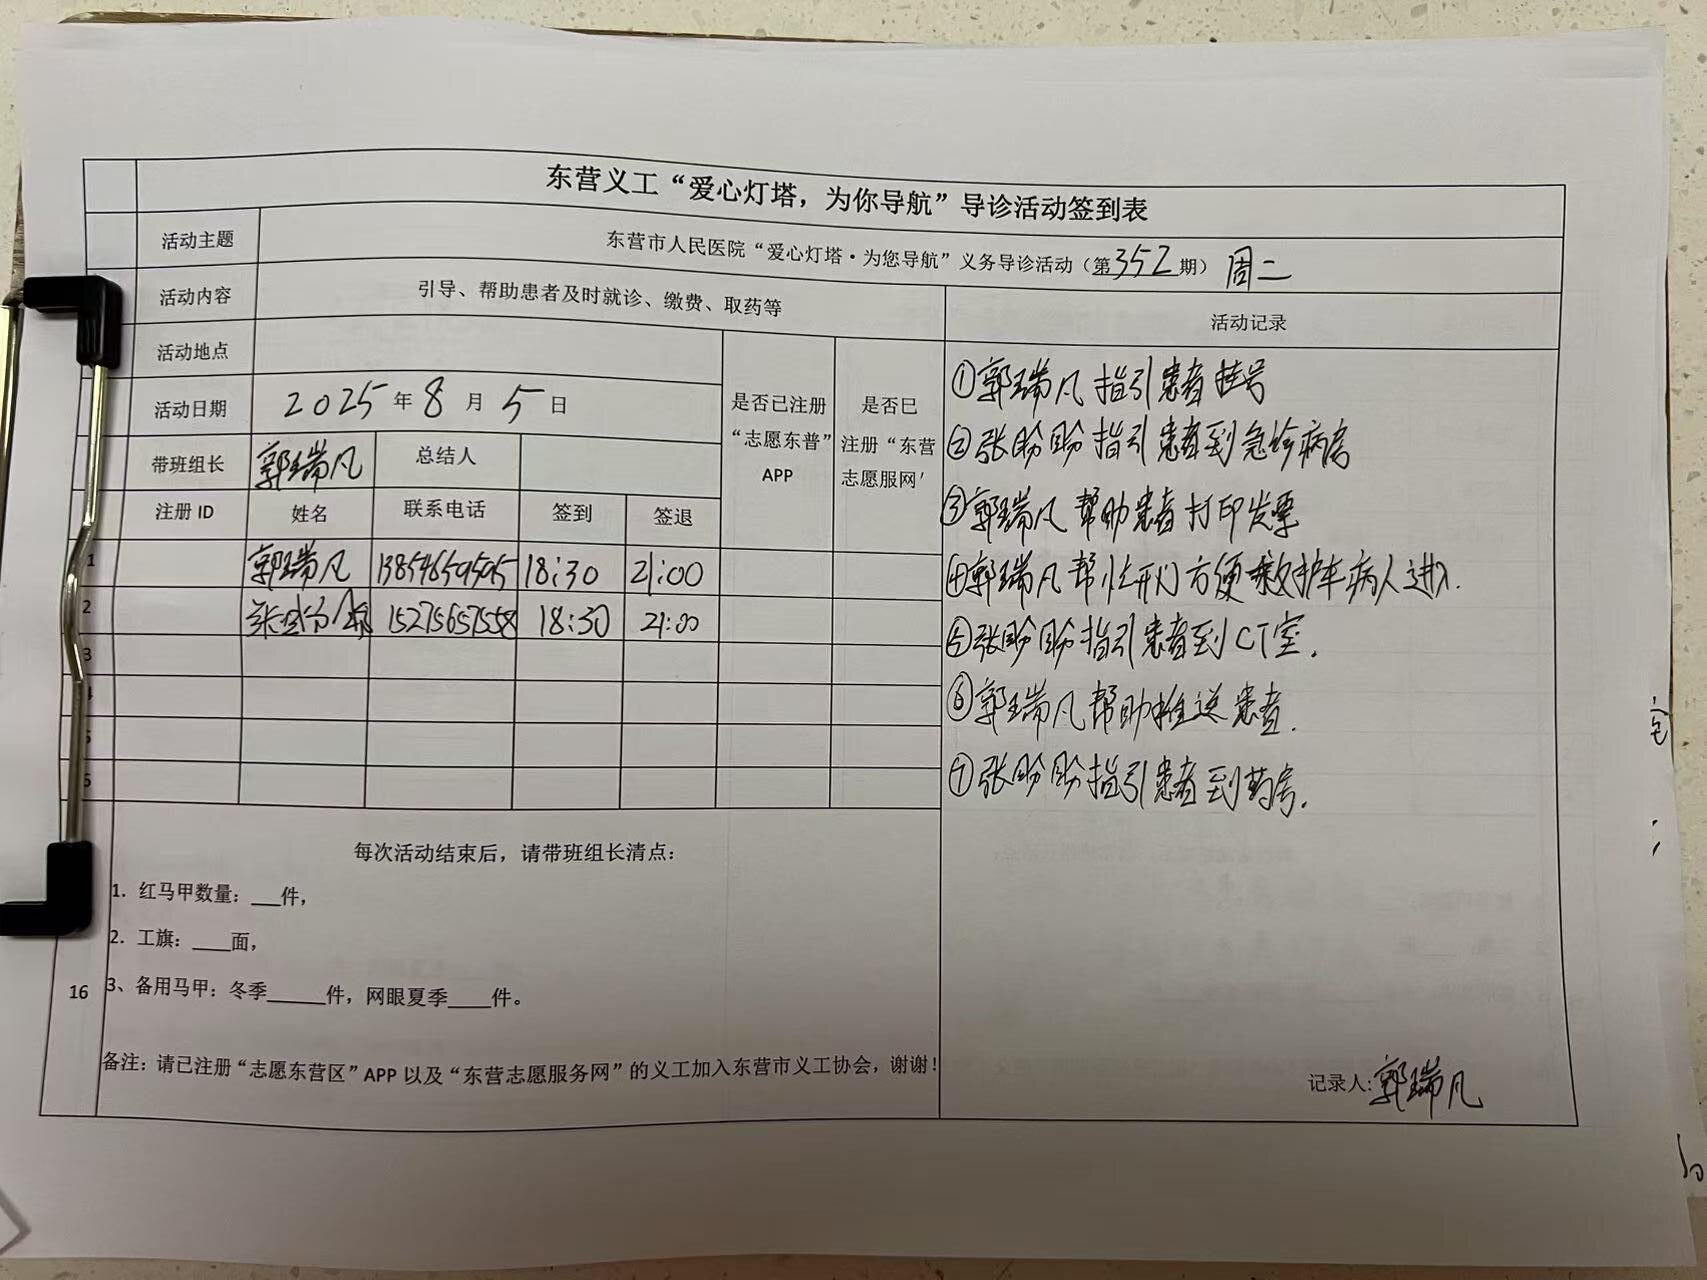 东营义工“爱心灯塔，为你导航”导诊活动签到表
活动主题 东营市人民医院“爱心灯塔·为您导航”义务导诊活动（第352期） 周二
活动内容 引导、帮助患者及时就诊、缴费、取药等 活动记录
活动地点
活动日期 2025年8月5日
是否已注册“志愿东普”APP
是否已注册“东营志愿服网'
带班组长 郭瑞凡 总结人
注册ID 姓名 联系电话 签到 签退
1 郭瑞凡 13854659595 18:30 21:00
2 张盼盼 15275657558 18:30 21:00
3
4
5
6
①郭瑞凡指引患者挂号
②张盼盼指引患者到急诊病房
③郭瑞凡帮助患者打印发票
④郭瑞凡帮忙开门方便救护车病人进入.
⑤张盼盼指引患者到CT室.
⑥郭瑞凡帮助推送患者.
⑦张盼盼指引患者到药房.
每次活动结束后，请带班组长清点：
1. 红马甲数量：___件，
2. 工旗：____面，
16 3、备用马甲：冬季______件，网眼夏季____件。
备注：请已注册“志愿东营区”APP以及“东营志愿服务网”的义工加入东营市义工协会，谢谢！
记录人:郭瑞凡